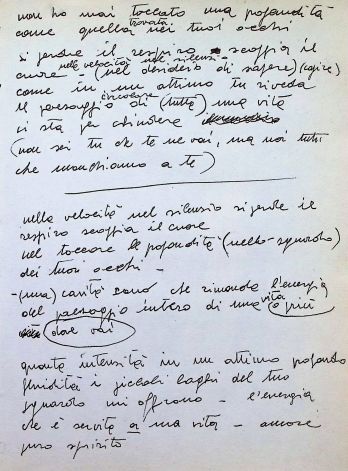 non ho mai toccato una profondità
come quella trovata nei tuoi occhi
si perde il respiro scoppia il
cuore nella velocità nel silenzio (nel desiderio di sapere) (capire)
come in un attimo tu riveda
il paesaggio circolare di (tutta) una vita
ti sta per chiudere
(non sei tu che te ne vai, ma noi tutti
che manchiamo a te)
nella velocità nel silenzio si perde il
respiro scoppia il cuore
nel toccare la profondità (nello sguardo)
dei tuoi occhi -
- (una) cavità che rimanda l'energia
del paesaggio intero di una vita o più
dove vai
quanta intensità in un attimo profonda
fluidità i piccoli laghi del tuo
sguardo mi offrono - l'energia
che è servita a una vita - ancora
puro spirito